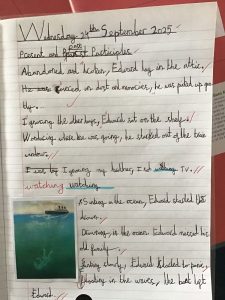 Wednesday 24th September 2025
Present and Past Participles
Abandoned and broken, Edward lay in the attic.
He was covered in dust and memories, he was picked up gently.
Ignoring the other toys, Edward sat on the shelf.
Wondering where he was going, he stared out of the train
window.
I was by Ignoring my brother, I sat TV.
watching watching
Sinking in the ocean, Edward started to
drown.
Drowning in the ocean Edward missed his
old family.
Sinking slowly, Edward started to panic.
Floating in the waves, the boat left
Edward.